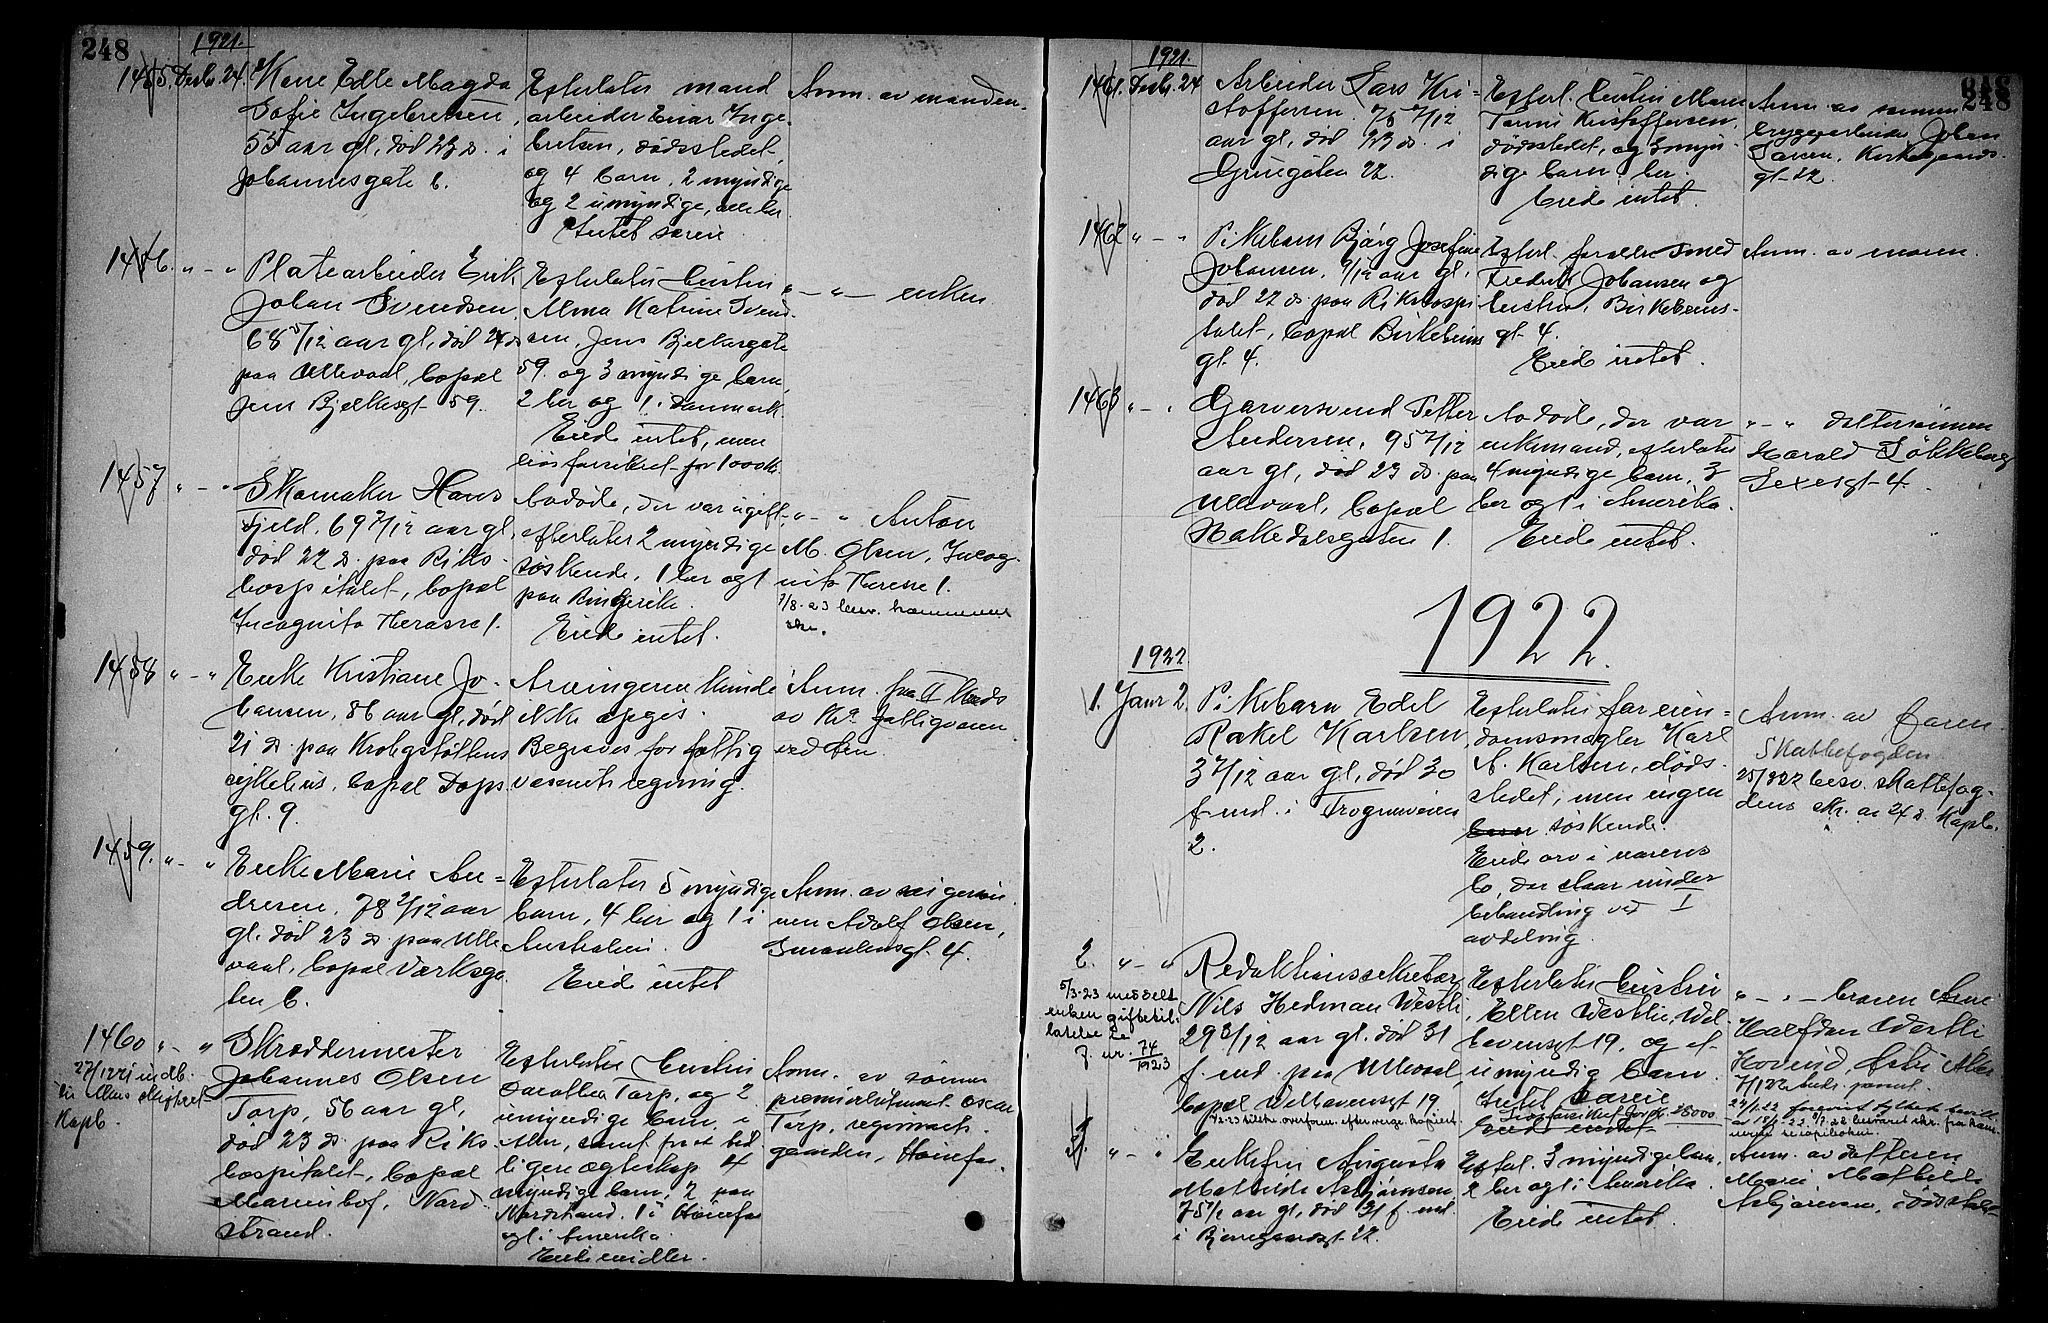 248
1921.
1455. Desbr. 24.
Kone Edle Magda
Sofie Ingebretsen,
55 aar gl, død 23 ds. i
Johannesgate 6.
Efterlater mand
arbeider Einar Inge-
bretsen, dødsstedet,
og 4 barn, 2 myndige
og 2 umyndige, alle her.
Intet særeie
Anm. av manden.
1456. " - "
Platearbeider Erik
Johan Svendsen,
68 5/12 aar gl, død 24 ds
paa Ullevaal, bopæl
Jens Bjelkesgt 59.
Efterlater hustru
Alma Katrine Svend-
sen, Jens Bjelkesgate
59. og 3 myndige barn,
2 her og 1 i Danmark.
Eied intet, men
livsforsikret for 1000 kr.
" - " - enken
1457 " - "
Skomaker Hans
Fjeld, 69 7/12 aar gl,
død 22 ds. paa Riks-
hospitalet, bopæl
Incognito Terasse 1.
Avdøde, der var ugift,
efterlater 2 myndige
søskende, 1 her og 1
paa Ringerike.
Eied intet.
" - " Anton
M. Olsen, Incog-
nito Terasse 1.
1458 " - "
Enke Kristiane Jo-
hansen, 86 aar gl, død
21 ds. paa Krohgstøttens
sykehus, bopæl Dops
gt. 9.
Arvingerne kunde
ikke opgis.
Begraves for fattig
væsenets regning.
Anm. fra
av Kra. fattigvæsen
1459. " - "
Enke Marie An-
dresen, 78 2/12 aar
gl. død 23 ds. paa Ulle
vaal, bopæl Værksga-
ten 6.
Efterlater 5 myndige
barn, 4 her og 1 i
Australien.
Eied intet
Anm. av svigersøn-
nen Adolf Olsen,
Smaalensgt. 4.
1460 " - "
27/12 21 medb.
Kapb.
Skræddermester
Johannes Olsen
Torp, 56 aar gl,
død 23 ds. paa Riks
hospitalet, bopæl
Marienhof, Nord-
strand.
Efterlater hustru
Dorothea Torp, og 2
umyndige barn,
samt fra et tid-
ligere ægteskap 4
myndige barn, 2 paa
Nordstrand, 1 i Hønefos
og 1 i Amerika.
Eied midler.
Anm. av sønnen
premierløitnant Oscar
Torp, regiments-
gaarden, Hønefos.
248
1921.
1461. Desbr. 24
Arbeider Lars Kri-
stoffersen, 76 7/12
aar gl, død 23 ds. i
Grünegaten 22.
Efterl. hustru Maren
Kristoffersen,
dødsstedet, og 3 myn-
dige barn her.
Eied intet.
Anm. av sønnen
bryggearbeider Johan
Larsen, Kirkegaards-
gt. 22.
1462 " - "
Pikebarn Bjørg Josefine
Johansen, 9/12 aar gl,
død 22 ds paa Rikshospi
talet, bopæl Birkebeiner
gt. 4.
Efterl. forældre smed
Fredrik Johansen og
hustru, Birkebeiner-
gt. 4.
Eied intet.
Anm. av moren.
1463 " - "
Garversvend Petter
Andersen, 95 7/12
aar gl, død 23 ds. paa
Ullevaal, bopæl
Hakedalsgaten 1.
Avdøde, der var
enkemand, efterlater
4 myndige barn, 3
her og 1 i Amerika.
Eied intet.
" - " dattersønnen
Harald Løkkeberg
Sexesgt. 4.
1922.
1922
1. Janr 2.
Pikebarn Edel
Rakel Karlsen,
3 7/12 aar gl, død 30
f. md. i Frognerveien
2.
Efterlater far eien-
domsmægler Karl
A. Karlsen, døds-
stedet, men ingen
barn søskende.
Eied arv i morens
bo, der staar under
behandling ved I
avdeling.
Anm. av faren
Skattefogden
25/8 22 besv. skattefog-
dens skr. av 24 ds. Kapb.
2. " - "
5/3-23 meddelt
enken giftetil-
latelse
J. nr. 74/1923
Redaktionssekretær
Nils Hedman Westli,
29 3/12 aar gl. død 31
f. md. paa Ullevaal,
bopæl Welhavensgt 19
Efterlater hustru
Ellen Westlie, Wel-
havensgt 19, og et
umyndig barn.
Intet særeie
Livsforsikret for kr. 28000
Eied intet
" - " - broren Arne
Halfdan Westli
Hovind, Østre Aker
3. " - "
Enkefru Augusta
Mathilde Asbjørnsen,
75 1/2 aar gl, død 31 f. md.
i Bjerregaardsgt 22.
Efterl. 3 myndige barn,
2 her og 1 i Amerika.
Eied intet.
Anm. av datteren
Marie Mathilde
Asbjørnsen, dødsstedet